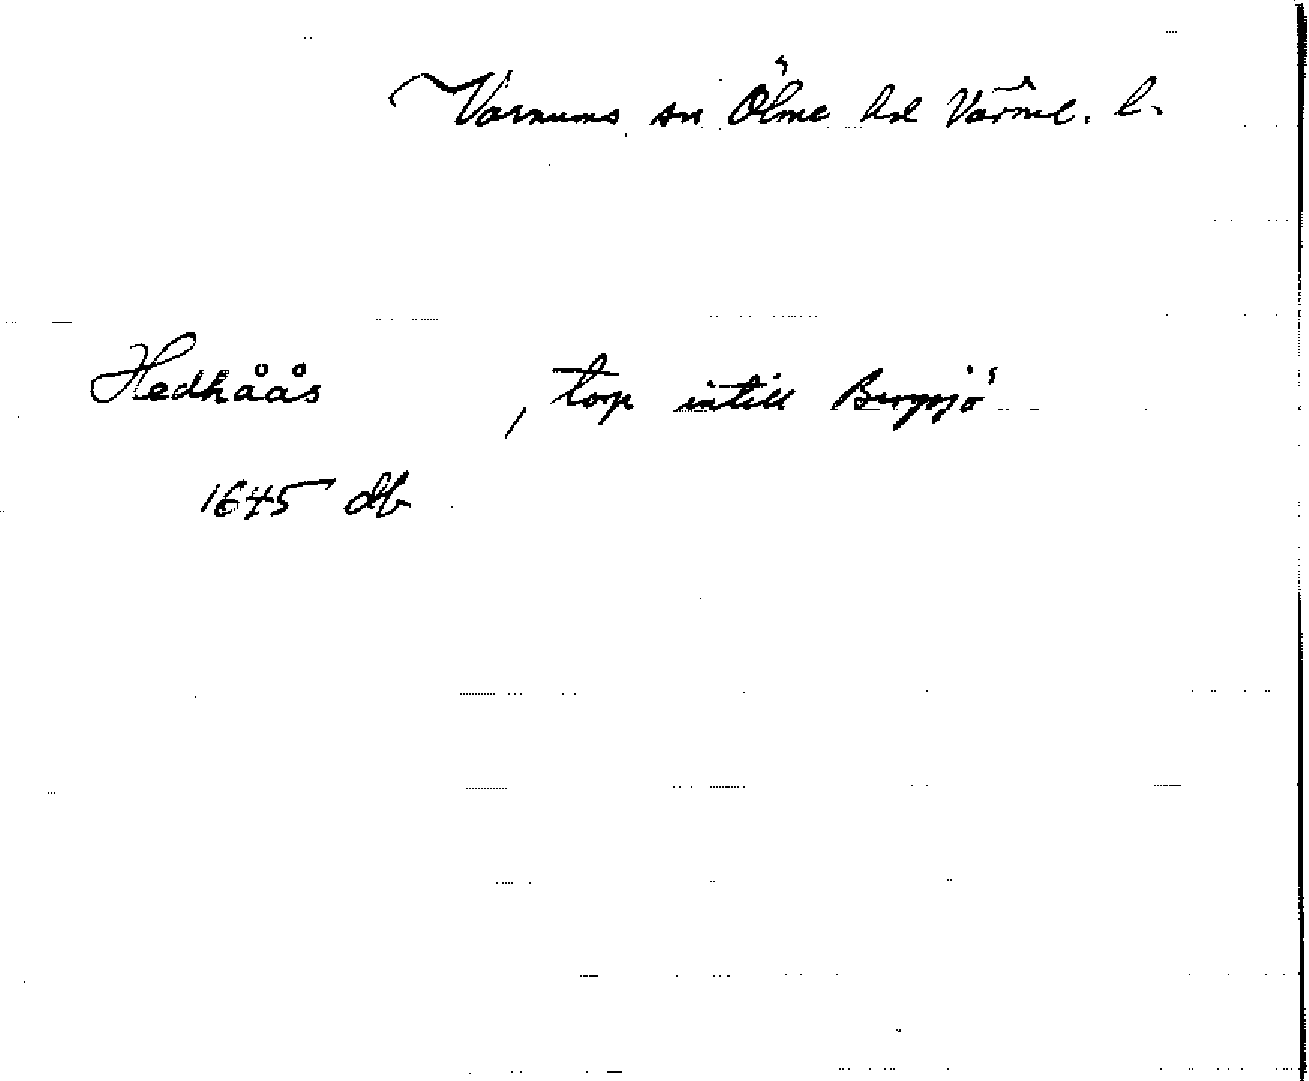 Varnums sn Ölme hd Värml. l.
Hedhåås , torp intill Bergsjö
1645 db